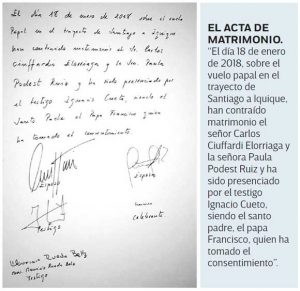 El día 18 de enero de 2018 sobre el vuelo
Papal en el trayecto de Santiago a Iquique
han contraido matrimonio el Sr. Carlos
Ciuffardi Elorriaga y la Sra. Paula
Podest Ruiz y ha sido presenciado por
el testigo Ignacio Cueto, siendo el
Santo Padre el Papa Francisco quien
ha tomado el consentimiento.
Esposo
Esposa
Testigo
Franciscus
celebrante
Testigo
EL ACTA DE
MATRIMONIO.
"El día 18 de enero
de 2018, sobre el
vuelo papal en el
trayecto de
Santiago a Iquique,
han contraído
matrimonio el
señor Carlos
Ciuffardi Elorriaga y
la señora Paula
Podest Ruiz y ha
sido presenciado
por el testigo
Ignacio Cueto,
siendo el santo
padre, el papa
Francisco, quien ha
tomado el
consentimiento".